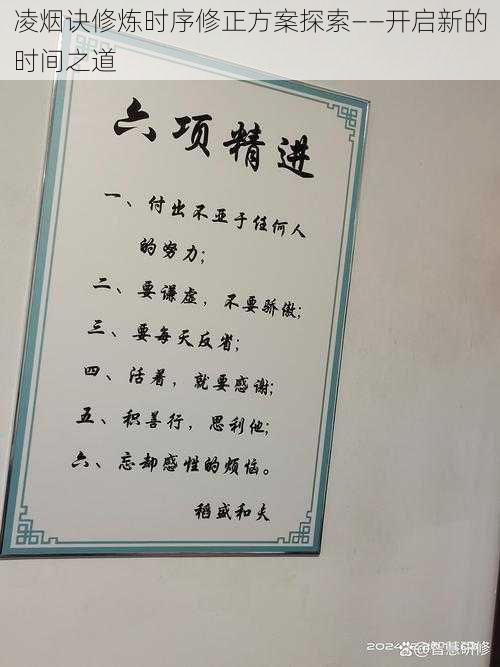 凌烟诀修炼时序修正方案探索——开启新的
时间之道
六项精进
一、付出不亚于任何人
的努力；
二、要谦虚，不要骄傲；
三、要每天反省；
四、活着，就要感谢；
五、积善行，思利他；
六、忘却感性的烦恼。
稻盛和夫
@智慧研修